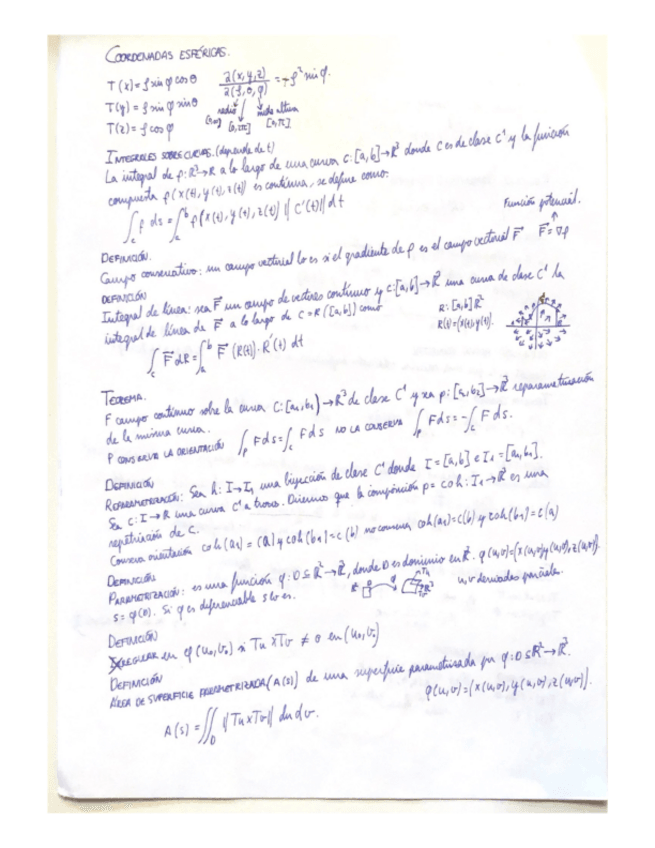 COORDENADAS ESFÉRICAS.
T(x) = ρ sin φ cos θ   ∂(x,y,z)/∂(ρ,θ,φ) = -ρ² sin φ.
T(y) = ρ sin φ sin θ   radio   mide altura
T(z) = ρ cos φ   [0,2π]   [0,π]
INTEGRALES SOBRE CURVAS. (depende de t)
La integral de f: ℝ³→ℝ a lo largo de una curva c: [a,b]→ℝ³ donde c es de clase C¹ y la función
compuesta f(x(t), y(t), z(t)) es contínua, se define como:
∫_c f ds = ∫_a^b f(x(t), y(t), z(t)) ||c'(t)|| dt
Función potencial.
DEFINICIÓN.
Campo conservativo: un campo vectorial lo es si el gradiente de f es el campo vectorial F⃗   F⃗ = ∇f
DEFINICIÓN
Integral de línea: sea F⃗ un campo de vectores contínuo y c: [a,b]→ℝ² una curva de clase C¹ la
integral de línea de F⃗ a lo largo de C = R([a,b]) como   R: [a,b] ℝ²
R(t) = (x(t), y(t)).
∫_c F⃗ dR = ∫_a^b F⃗(R(t)) · R'(t) dt
TEOREMA.
F campo contínuo sobre la curva C: [a₁,b₁]→ℝ³ de clase C¹ y sea p: [a₂,b₂]→ℝ³ reparametrización
de la misma curva.
P CONSERVA LA ORIENTACIÓN ∫_p F ds = ∫_c F ds   NO LA CONSERVA ∫_p F ds = -∫_c F ds.
DEFINICIÓN
REPARAMETRIZACIÓN: Sea h: I→I₁ una biyección de clase C¹ donde I = [a,b] e I₁ = [a₁,b₁].
Sea c: I→ℝ una curva C¹ a trozos. Diremos que la composición p = c∘h: I₁→ℝ³ es una
de C.
Conserva orientación c∘h(a₁) = c(a) y c∘h(b₁) = c(b) no conserva c∘h(a₁) = c(b) y c∘h(b₁) = c(a)
DEFINICIÓN
PARAMETRIZACIÓN: es una función φ: D ⊆ ℝ²→ℝ³, donde D es dominio en ℝ². φ(u,v) = (x(u,v), y(u,v), z(u,v)).
S = φ(D). Si φ es diferenciable S lo es.   u, v derivadas parciales.
DEFINICIÓN
REGULAR en φ(u₀,v₀) si Tu x Tv ≠ 0 en (u₀,v₀)
DEFINICIÓN
ÁREA DE SUPERFICIE PARAMETRIZADA (A(s)) de una superficie parametrizada por φ: D ⊆ ℝ²→ℝ³.
φ(u,v) = (x(u,v), y(u,v), z(u,v)).
A(s) = ∬_D ||Tu x Tv|| du dv.